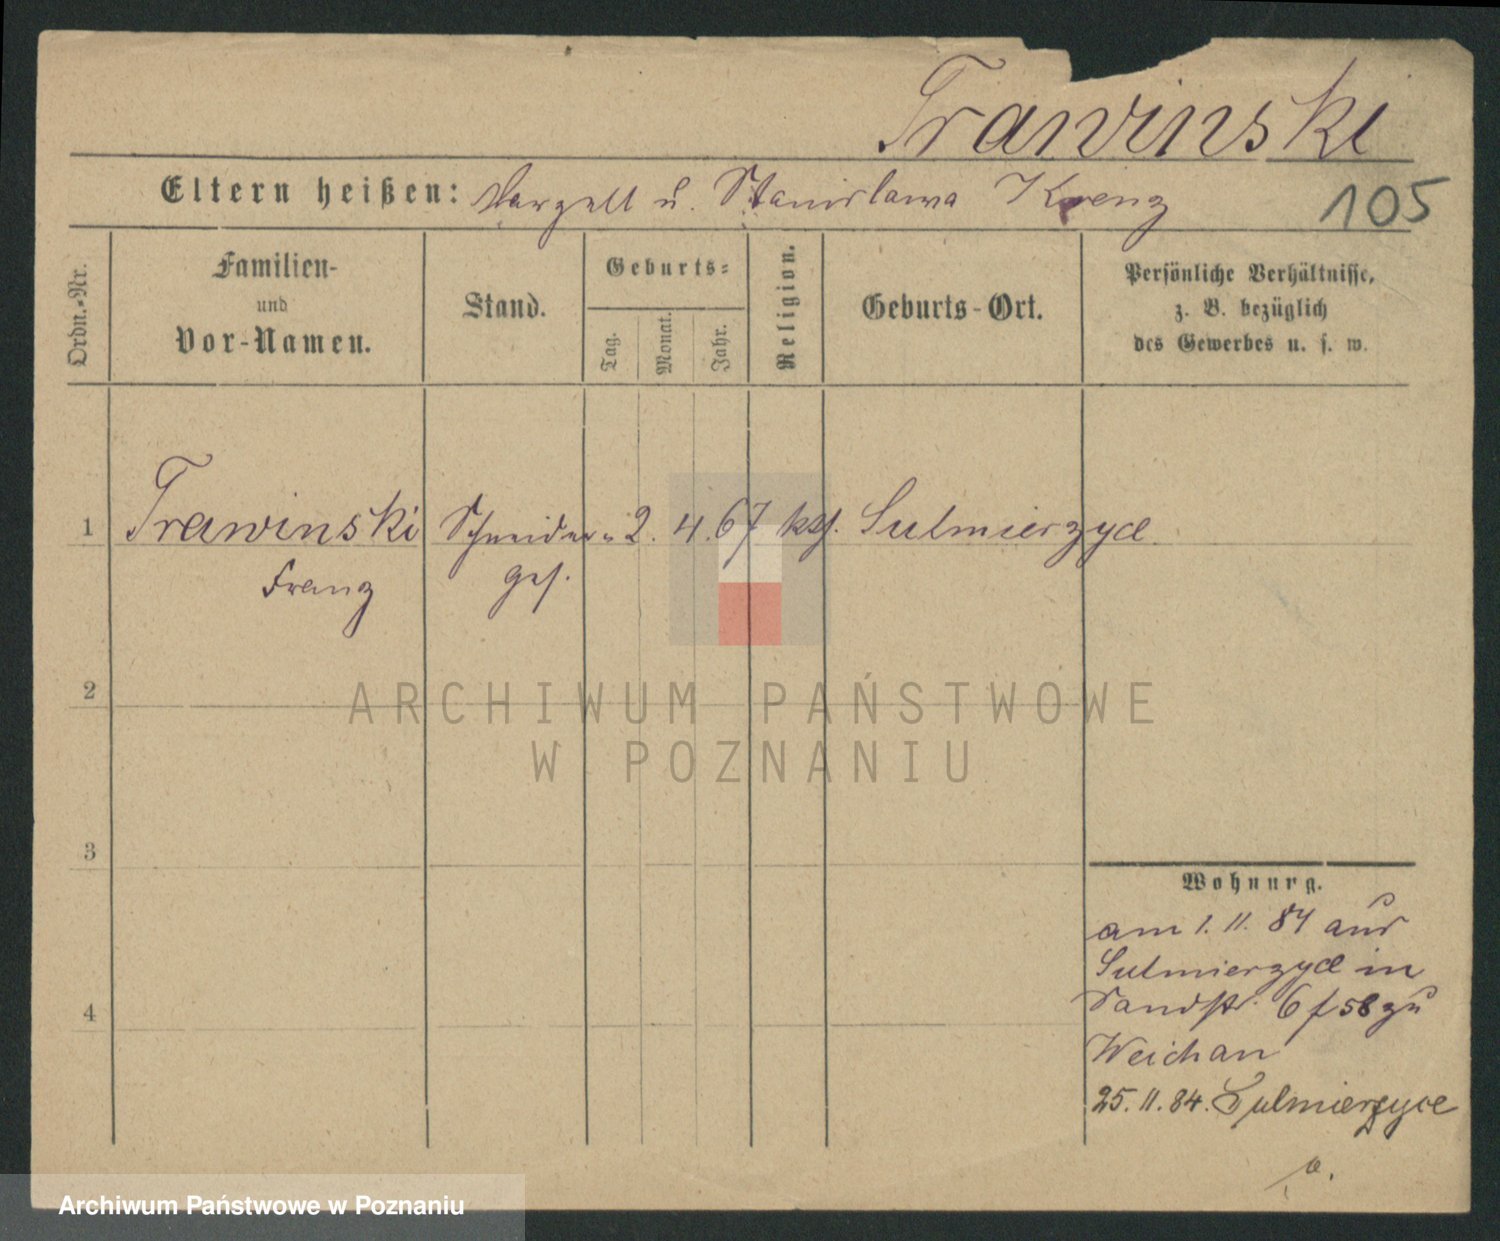 Trawinski
Eltern heißen: u. Stanislawa Krenz
105
Ordn.-Nr.
Familien-
und
Vor-Namen.
Stand.
Geburts-
Tag.
Monat.
Jahr.
Religion.
Geburts-Ort.
Persönliche Verhältnisse,
z. B. bezüglich
des Gewerbes u. s. w.
1 Trawinski Schneider- 2. 4. 67 kth. Sulmierzyce
Franz ges.
2
3
4
Wohnung.
am 1. 11. 84 aus
Sulmierzyce in
Sandstr. 6 f 58 zu
Weichan
25. 11. 84. Sulmierzyce
ARCHIWUM PAŃSTWOWE
W POZNANIU
Archiwum Państwowe w Poznaniu